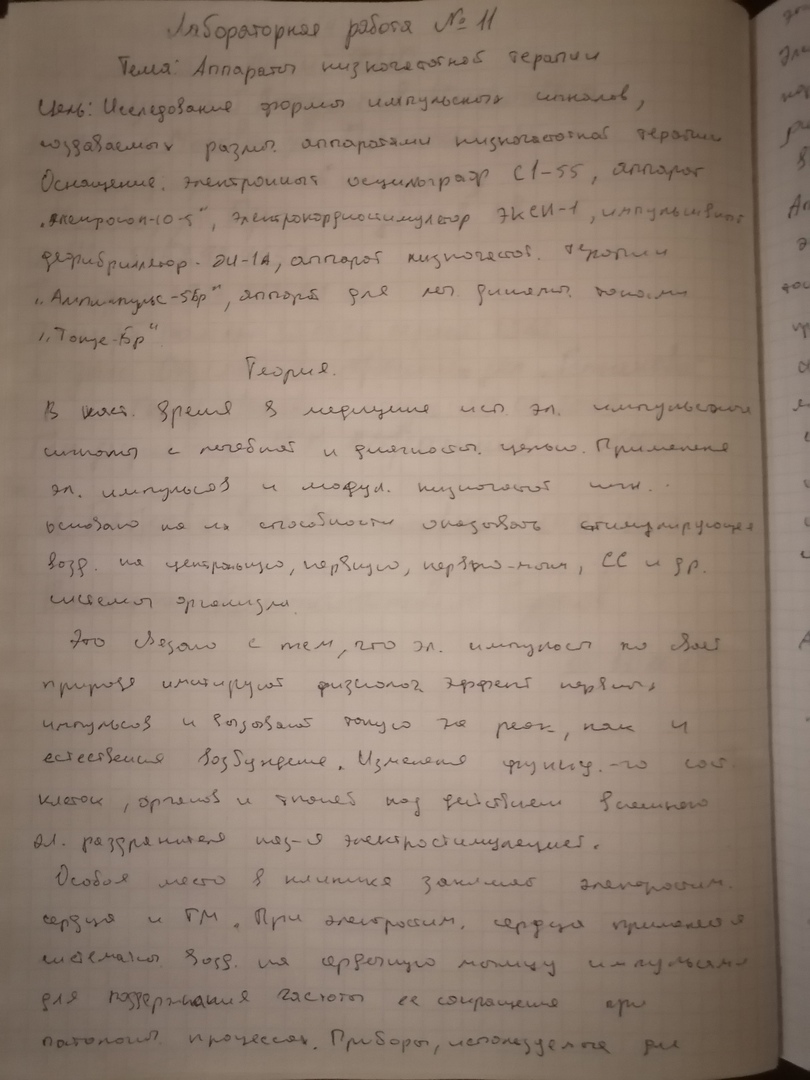 Лабораторная работа № 11
Тема: Аппараты низкочастотной терапии
Цель: Исследование формы импульсных сигналов,
создаваемых разл. аппаратами низкочастотной терапии
Оснащение: электронный осцилограф С1-55, аппарат
"Электросон-10-5", электрокардиостимулятор ЭКСИ-1, импульсивный
дефибриллятор - ДИ-1А, аппарат низкочаст. терапии
"Амплипульс-5Бр", аппарат для леч динами. токами
"Тонус-Бр"
Теория.
В наст. время в медицине исп эл. импульсные
сигналы с лечебной и диагност. целью. Применение
эл. импульсов и модул. низкочастот
основано на их способности оказывать стимулирующее
возд. на центральную, нервную, нервно-мыш, СС и др.
системы организма.
Это связано с тем, что эл. импульсы по своей
природе имитируют физиолог эффект нервных
импульсов и вызывают такую же реак, как и
естественное возбуждение. Изменение функц.-го сост.
клеток, органов и тканей под действием внешнего
эл. раздражителя наз-я электростимуляцией.
Особое место в клинике занимает электростим.
сердца и ГМ. При электростим. сердца применяется
системати. возд. на сердечную мышцу импульсами
для поддержания частоты ее сокращения при
патологич. процессах. Приборы, используемые для